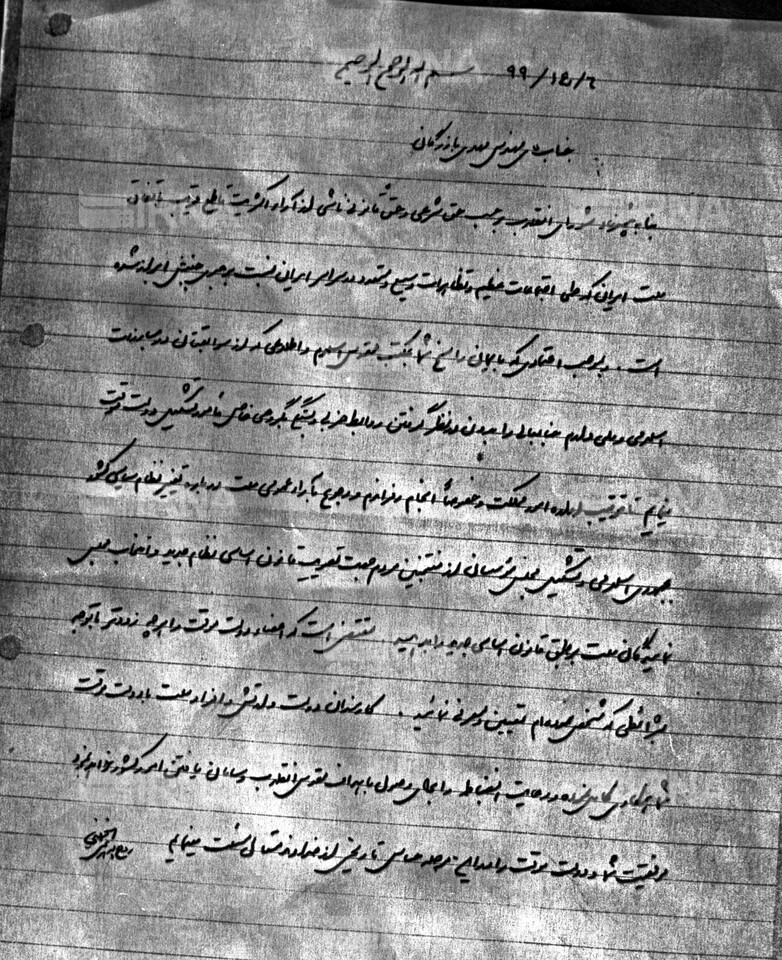 بسم الله الرحمن الرحیم ۶/ع۱/۹۹
جناب آقای مهندس مهدی بازرگان
بنا به پیشنهاد شورای انقلاب برحسب حق شرعی و حق قانونی ناشی از آراء اکثریت قاطع قریب باتفاق
ملت ایران که طی اجتماعات عظیم و تظاهرات وسیع و متعدد در سراسر ایران نسبت برهبری جنبش ابراز شده
است. و بموجب اعتمادی که بایمان راسخ شما بمکتب مقدس اسلام و اطلاعی که از سوابقتان در مبارزات
اسلامی و ملی دارم جنابعالی را بدون در نظر گرفتن روابط حزبی و بستگی بگروهی خاص مأمور تشکیل دولت موقت
مینمایم تا ترتیب اداره امور مملکت و خصوصاً انجام رفراندم و رجوع بآراء عمومی ملت درباره تغییر نظام سیاسی کشور
بجمهوری اسلامی و تشکیل مجلس مؤسسان از منتخبین مردم جهت تصویب قانون اساسی نظام جدید و انتخاب مجلس
نمایندگان ملت بر طبق قانون اساسی جدید را بدهید. مقتضی است که اعضاء دولت موقت را هر چه زودتر با توجه
بشرائطی که مشخص نموده‌ام تعیین و معرفی نمائید. کارمندان دولت و ارتش و افراد ملت با دولت موقت
شما همکاری کامل نموده و رعایت انضباط را برای وصول باهداف مقدس انقلاب و سامان یافتن امور کشور خواهند نمود
موفقیت شما و دولت موقت را در این مرحله حساس تاریخی از خداوند متعال مسئلت مینمایم روح الله الموسوی الخمینی